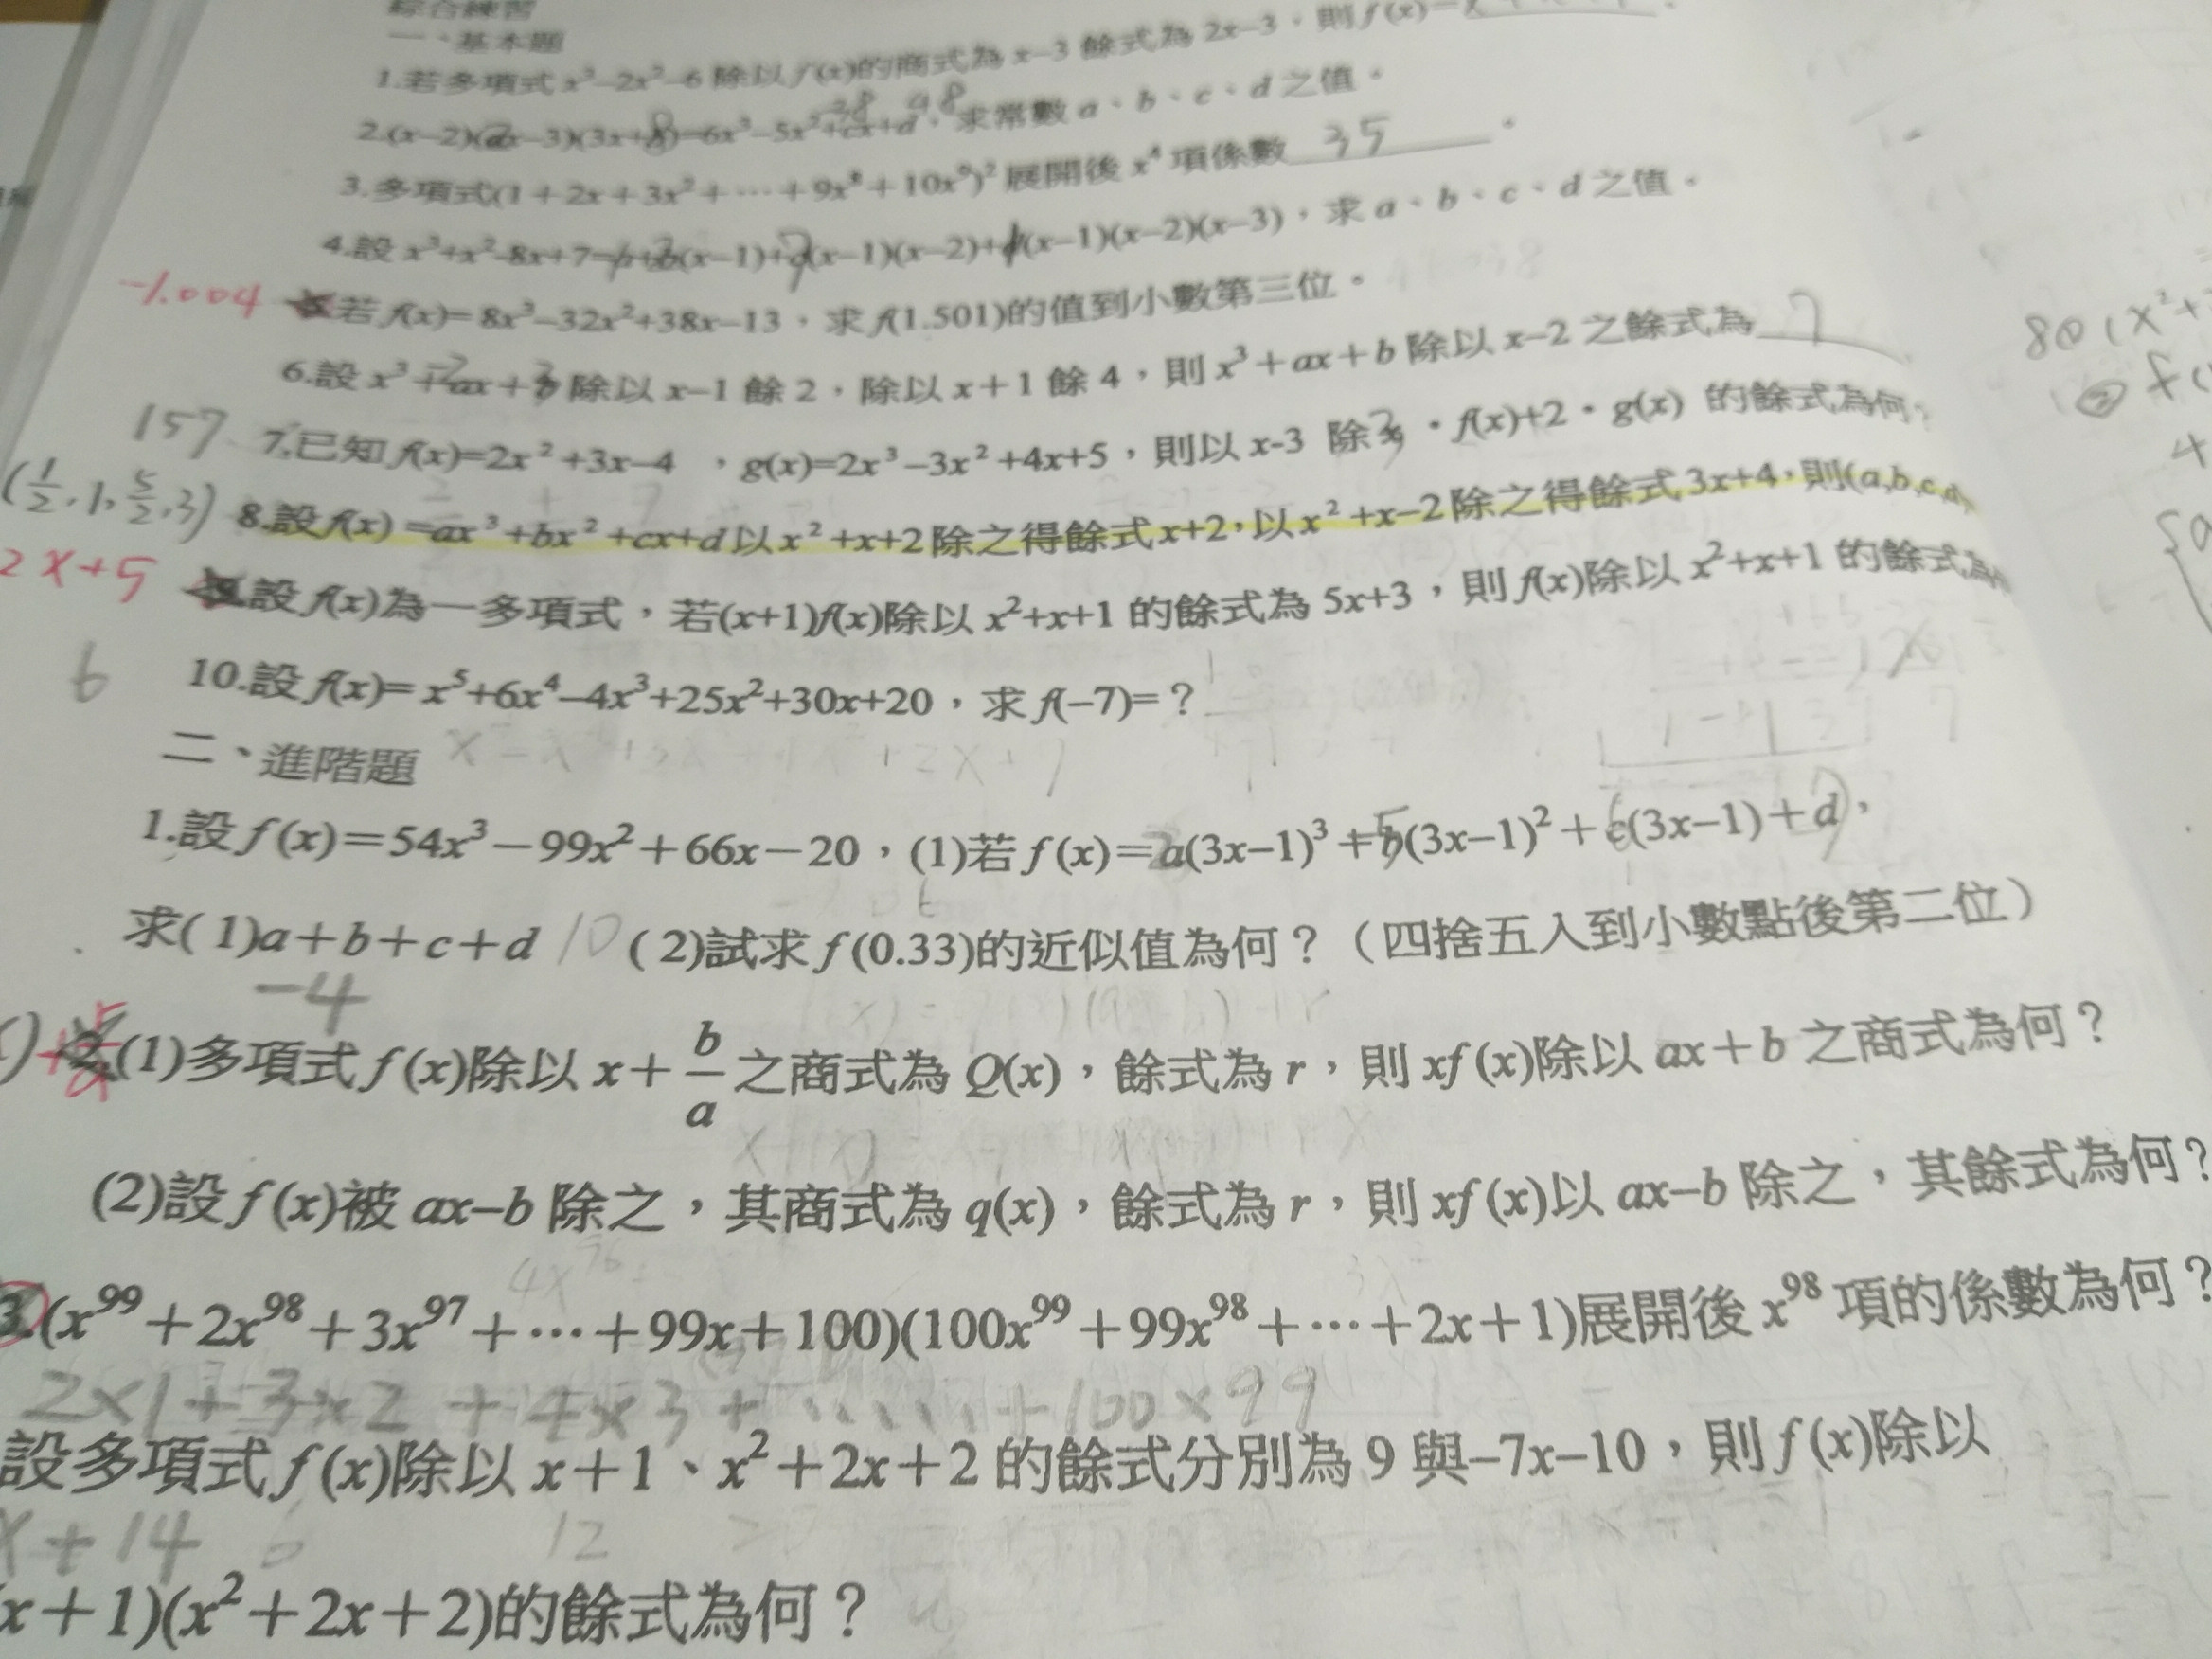 綜合練習
一、基本題
1.若多項式 x³−2x²−6 除以 f(x)的商式為 x−3 餘式為 2x−3，則 f(x)=
2.(x−2)(ax−3)(3x+b)=6x³−5x²+cx+d，求常數 a、b、c、d 之值。
3.多項式(1+2x+3x²+…+9x⁸+10x⁹)² 展開後 x⁴ 項係數 35 。
4.設 x³+x²-8x+7=a+b(x−1)+c(x−1)(x−2)+d(x−1)(x−2)(x−3)，求 a、b、c、d 之值。
-1.004 若 f(x)=8x³−32x²+38x−13，求 f(1.501)的值到小數第三位。
6.設 x³+ax+b 除以 x−1 餘 2，除以 x+1 餘 4，則 x³+ax+b 除以 x−2 之餘式為 7
157 7.已知 f(x)=2x²+3x−4 ，g(x)=2x³−3x²+4x+5，則以 x-3 除 3 · f(x)+2 · g(x) 的餘式為何？
(1/2, 1, 5/2, 3) 8.設 f(x) =ax³+bx²+cx+d 以 x²+x+2 除之得餘式 x+2，以 x²+x−2 除之得餘式 3x+4，則(a,b,c,d)
2x+5 設 f(x)為一多項式，若(x+1)f(x)除以 x²+x+1 的餘式為 5x+3，則 f(x)除以 x²+x+1 的餘式為
6 10.設 f(x)= x⁵+6x⁴−4x³+25x²+30x+20，求 f(−7)=？
二、進階題
1.設 f(x)=54x³−99x²+66x−20，(1)若 f(x)=a(3x−1)³+b(3x−1)²+c(3x−1)+d，
求(1)a+b+c+d 10 (2)試求 f(0.33)的近似值為何？（四捨五入到小數點後第二位）
-4
2.(1)多項式 f(x)除以 x+b/a 之商式為 Q(x)，餘式為 r，則 xf(x)除以 ax+b 之商式為何？
(2)設 f(x)被 ax−b 除之，其商式為 q(x)，餘式為 r，則 xf(x)以 ax−b 除之，其餘式為何？
3.(x⁹⁹+2x⁹⁸+3x⁹⁷+…+99x+100)(100x⁹⁹+99x⁹⁸+…+2x+1)展開後 x⁹⁸ 項的係數為何？
2×1+3×2+4×3+……+100×99
設多項式 f(x)除以 x+1、x²+2x+2 的餘式分別為 9 與−7x−10，則 f(x)除以
x+14
(x+1)(x²+2x+2)的餘式為何？